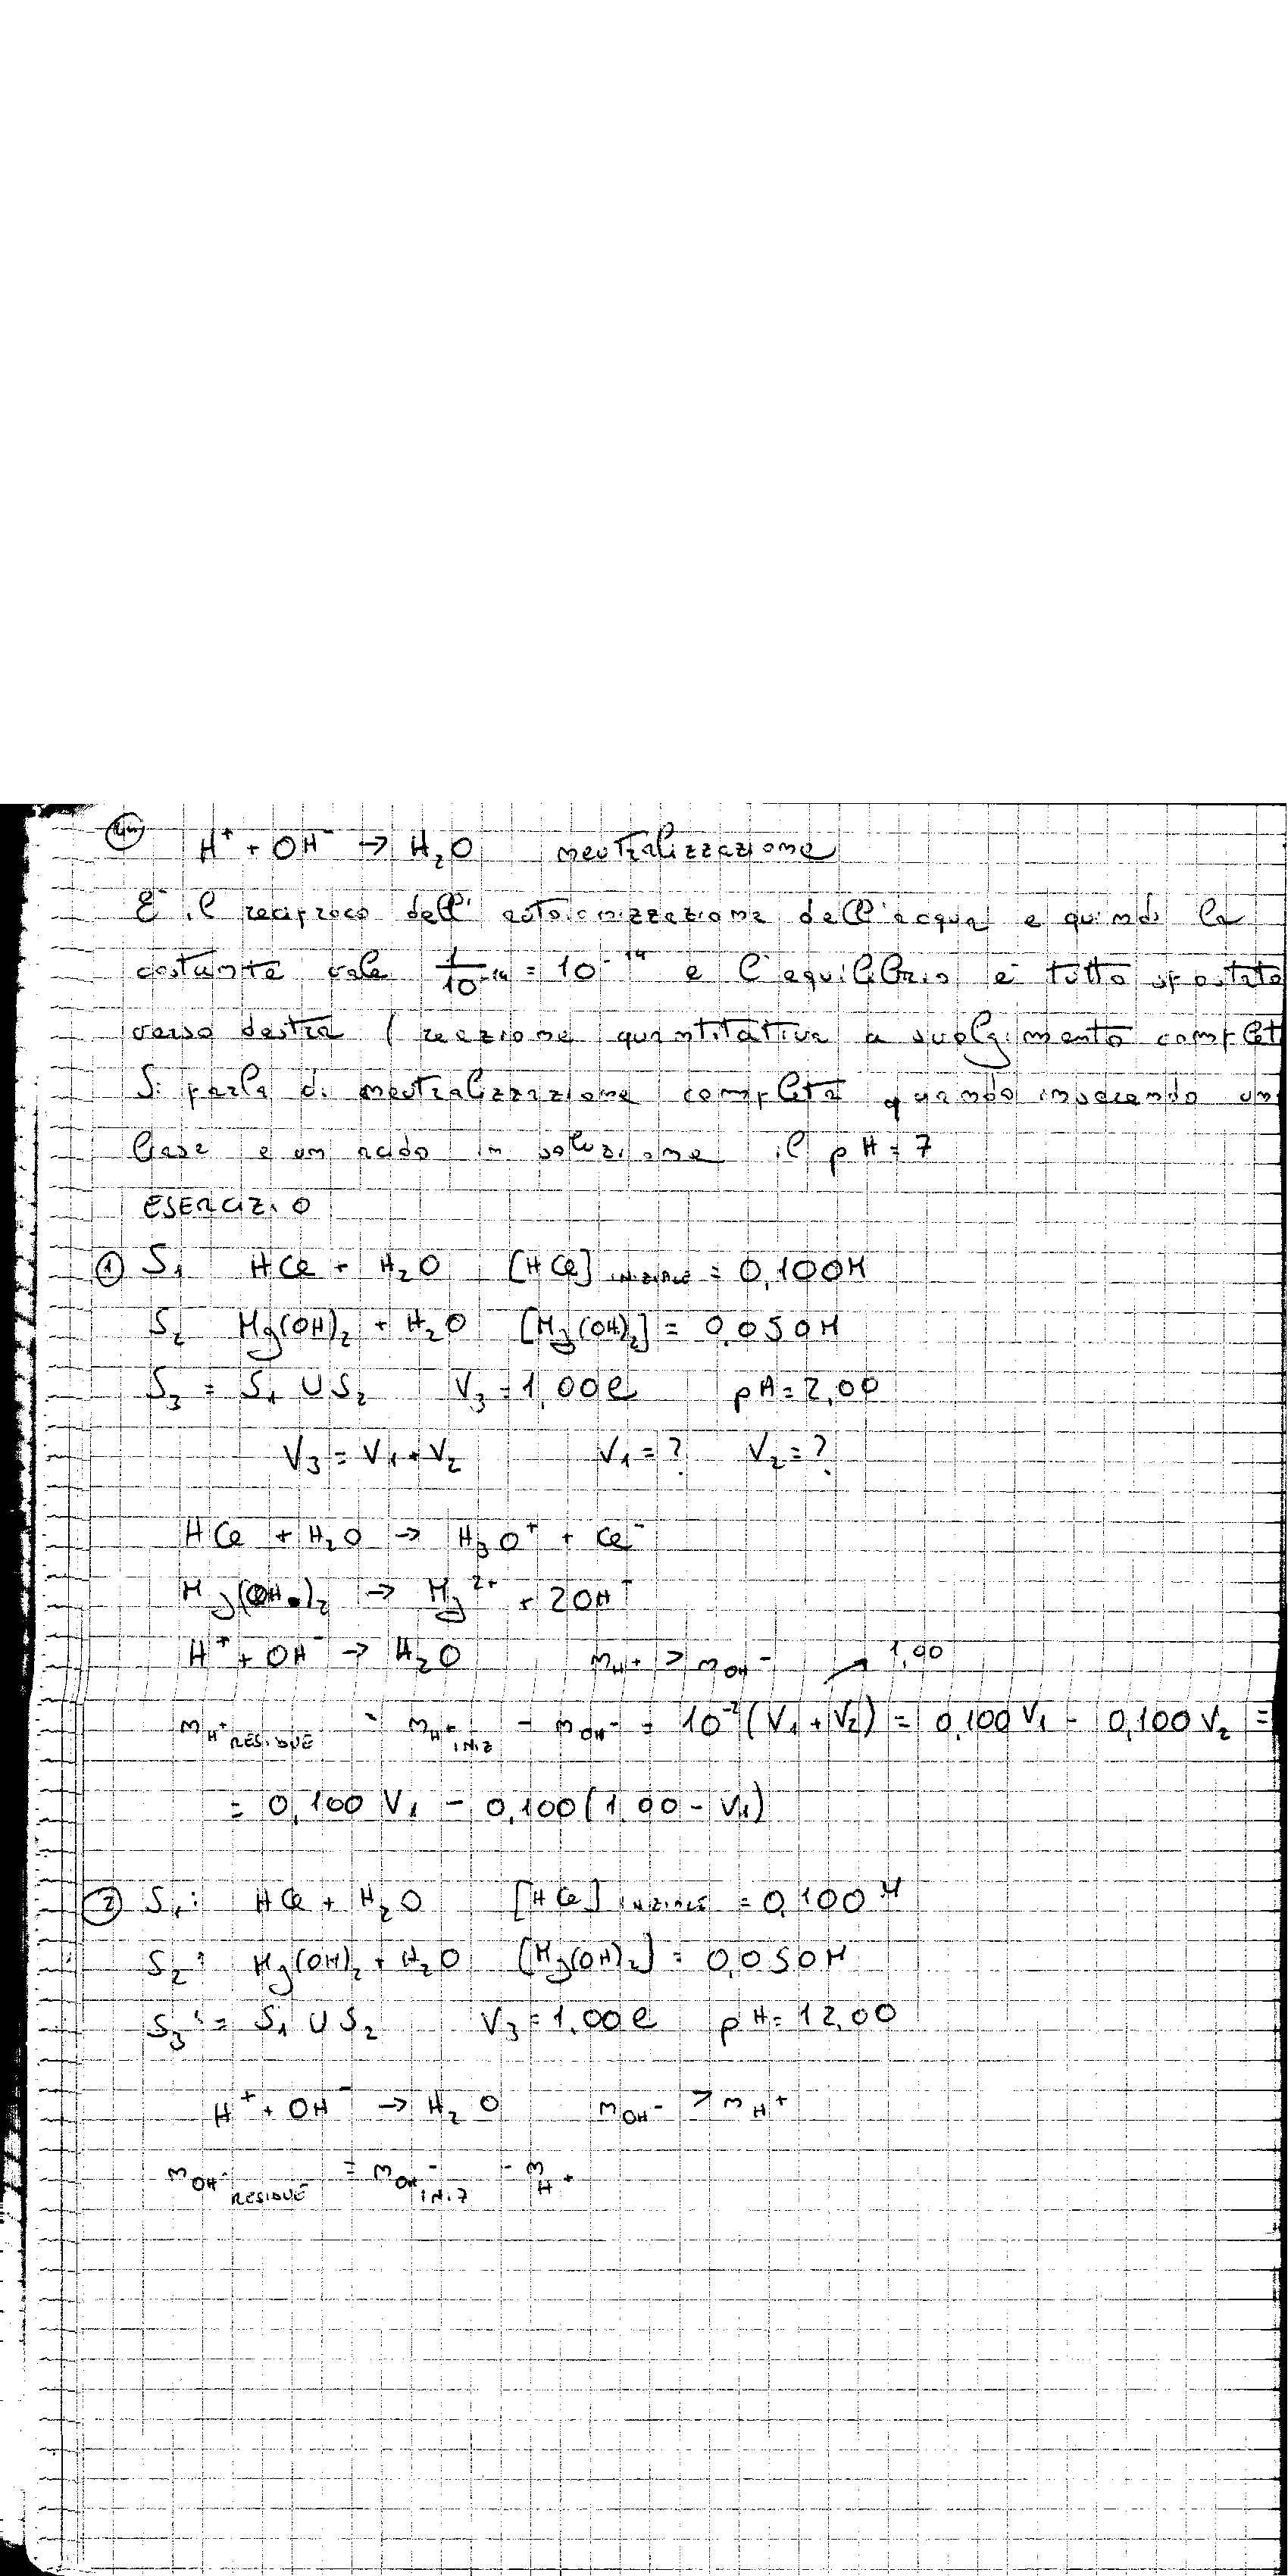 H⁺ + OH⁻ → H₂O neutralizzazione
E' il reciproco dell' autoionizzazione dell'acqua e quindi la
costante vale 1/10⁻¹⁴ = 10⁻¹⁴ e l'equilibrio è tutto spostato
verso destra ( reazione quantitativa a svolgimento complet
Si parla di neutralizzazione completa quando inserendo un
base e un acido in soluzione il pH = 7
ESERCIZIO
① S₁ HCl + H₂O [HCl] INIZIALE = 0,100M
S₂ Mg(OH)₂ + H₂O [Mg(OH)₂] = 0,050M
S₃ = S₁ ∪ S₂ V₃ = 1,00 l pH = 2,00
V₃ = V₁ + V₂ V₁ = ? V₂ = ?
HCl + H₂O → H₃O⁺ + Cl⁻
Mg(OH)₂ → Mg²⁺ + 2OH⁻
H⁺ + OH⁻ → H₂O n H⁺ > n OH⁻ 1,00
n H⁺ RESIDUE = n H⁺ INIZ - n OH⁻ = 10⁻² (V₁ + V₂) = 0,100 V₁ - 0,100 V₂ =
= 0,100 V₁ - 0,100 (1,00 - V₁)
② S₁: HCl + H₂O [HCl] INIZIALE = 0,100 M
S₂: Mg(OH)₂ + H₂O [Mg(OH)₂] = 0,050M
S₃ := S₁ ∪ S₂ V₃ = 1,00 l pH = 12,00
H⁺ + OH⁻ → H₂O n OH⁻ > n H⁺
n OH⁻ RESIDUE = n OH⁻ INIZ - n H⁺